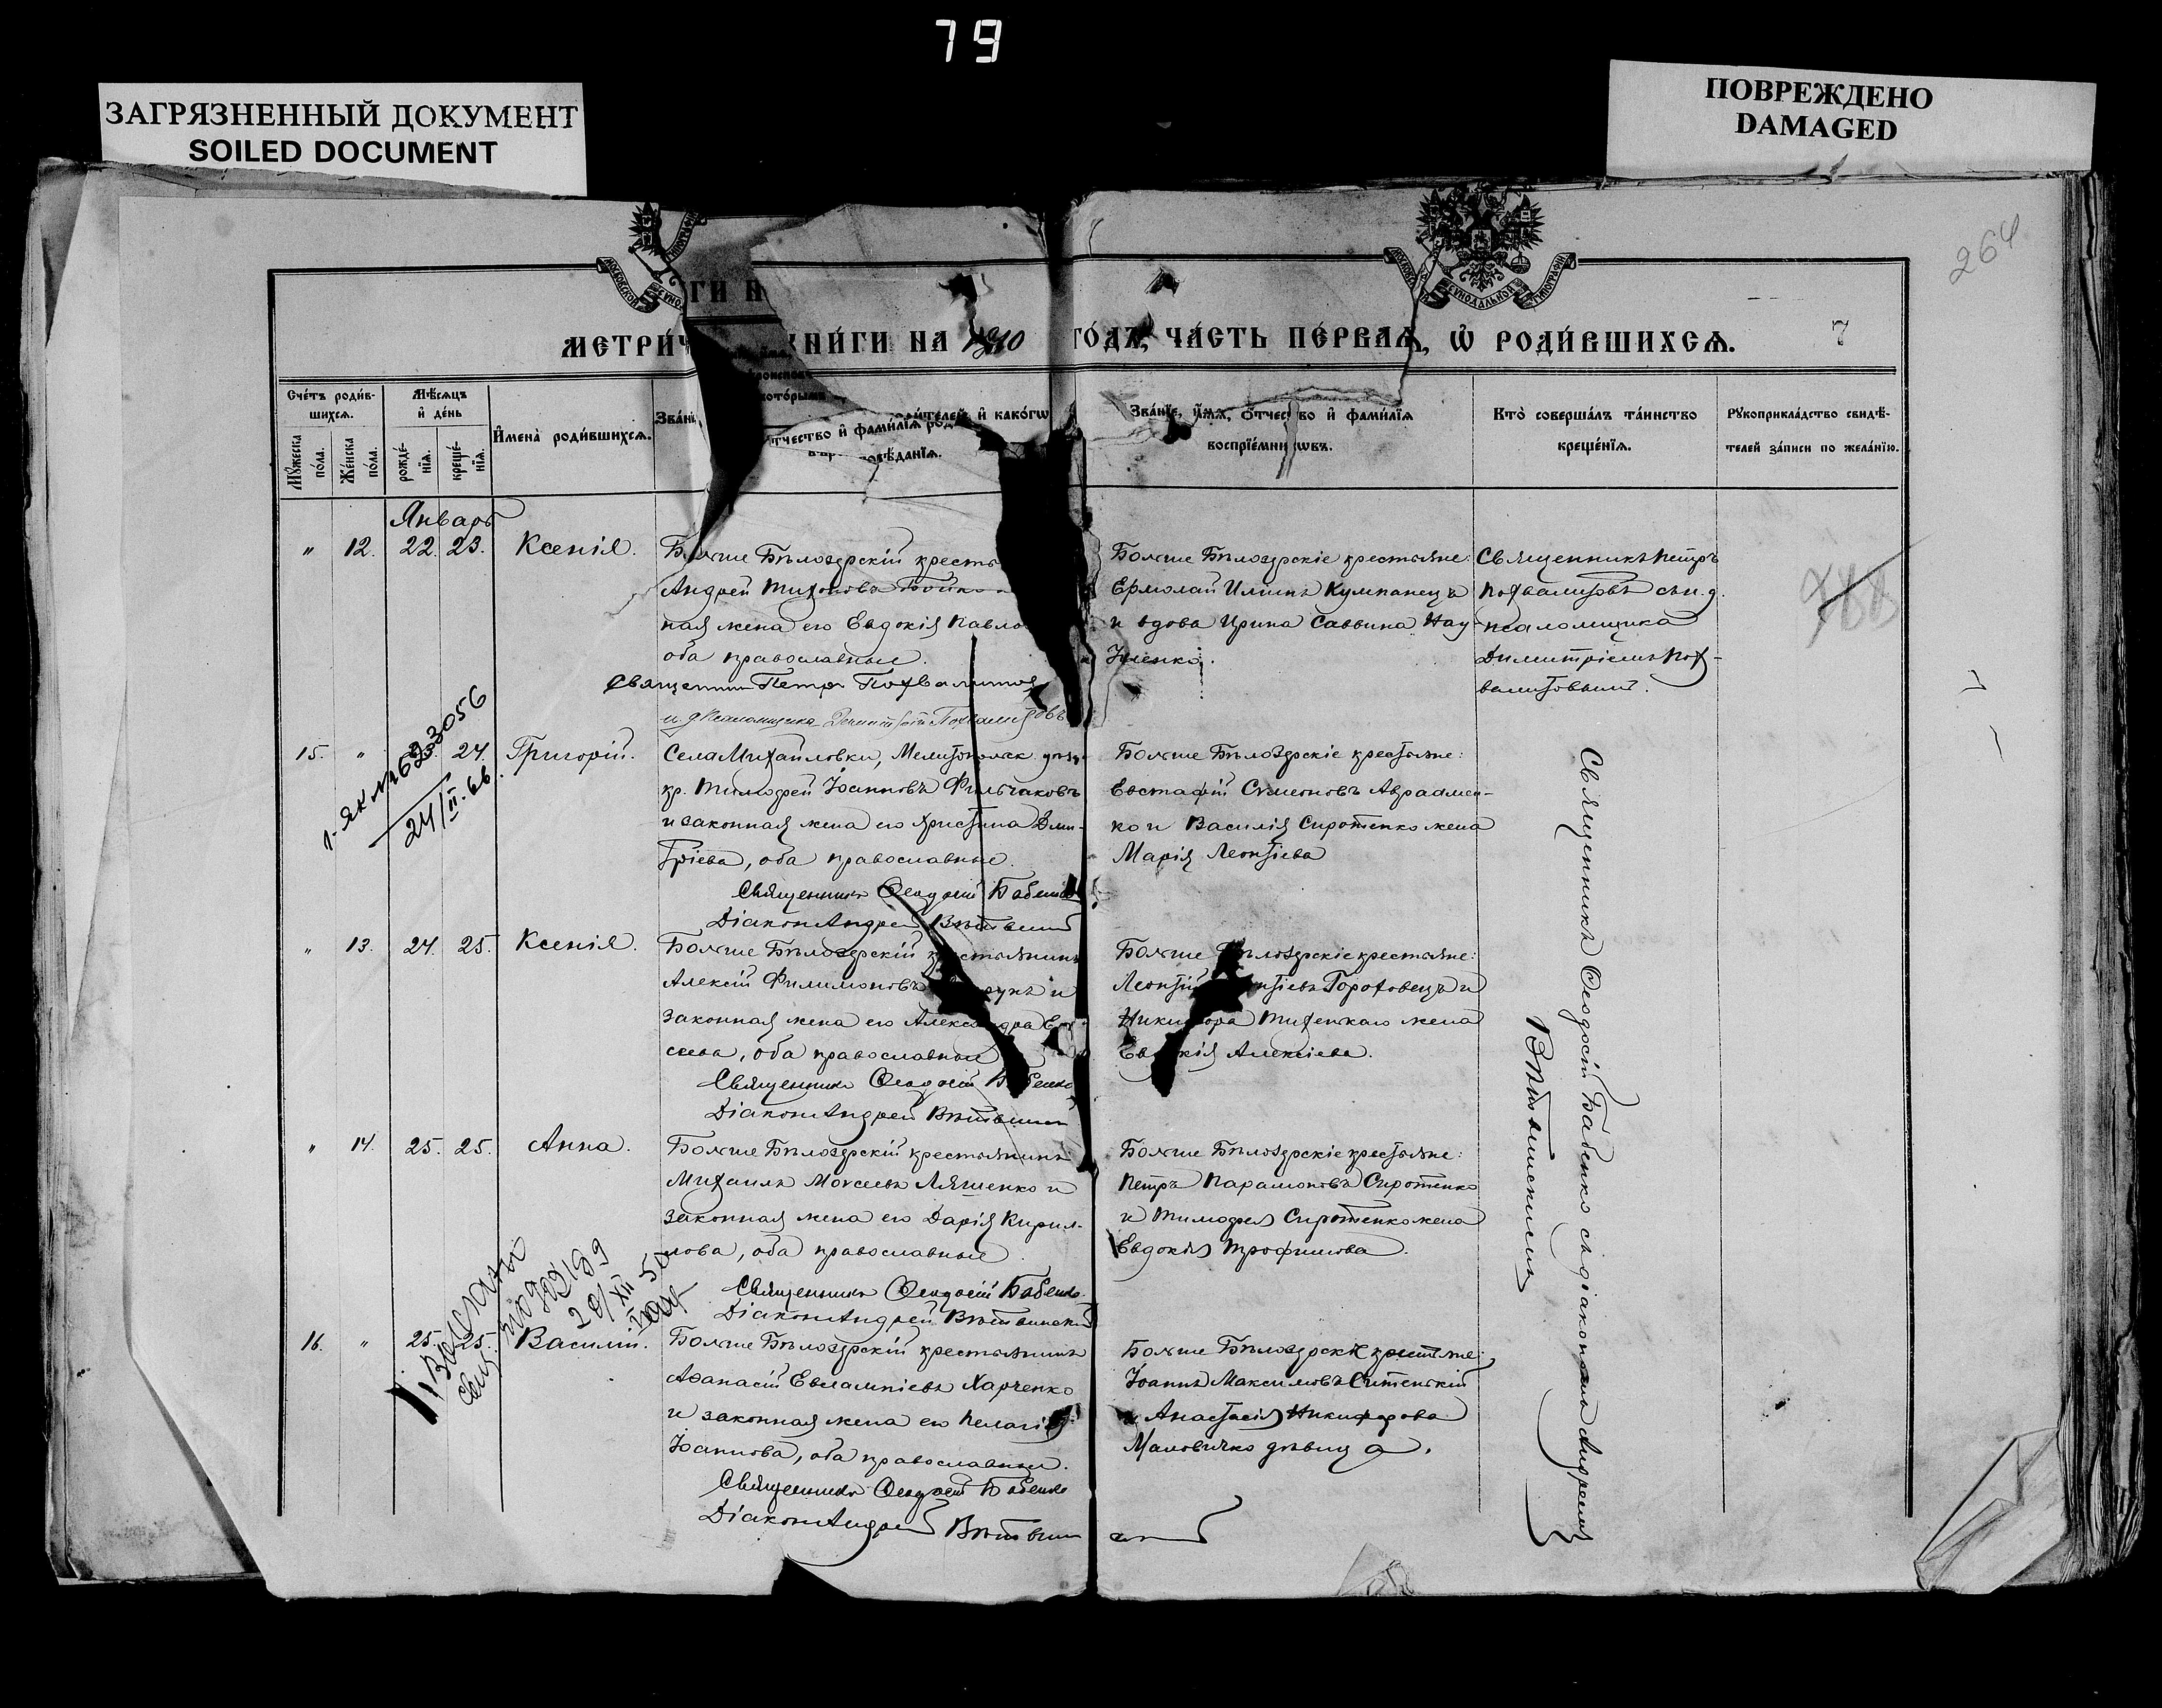 79
ЗАГРЯЗНЕННЫЙ ДОКУМЕНТ
SOILED DOCUMENT
ПОВРЕЖДЕНО
DAMAGED
264
МОСКОВСКОЙ СѴНОДАЛЬНОЙ ТИПОГРАФІИ
ГИ Н
МЕТРИ́Ч НИ́ГИ НА 1910 ГО́ДЪ, ЧА́СТЬ ПЕ́РВАѦ, Ѡ҆ РОДИ́ВШИХСѦ.
7
Сче́тъ роди́в-
шихсѧ.
Мꙋ́жеска по́ла.
Же́нска по́ла.
Мѣ́сѧцъ
и҆ де́нь
рожде́-
нїѧ.
креще́-
нїѧ.
И҆мена̀ роди́вшихсѧ.
Зва́нїе
кото́рымъ
о́тчество и҆ фами́лїѧ род
роди́телей, и҆ како́гѡ
вѣ́данїѧ.
Зва́нїе, и҆́мѧ, ѻ҆́тчество и҆ фами́лїѧ
воспрїе́мникѡвъ.
Кто̀ соверша́лъ та́инство
креще́нїѧ.
Рꙋкоприкла́дство свидѣ́-
телей за́писи по жела́нїю.
Январь
" 12. 22. 23. Ксенія.
Больше Бѣлозерскій кресть
Андрей Тихоновъ Бойко
ная жена его Евдокія Павло
оба православные.
Священник Петръ Похвалитов
и. д. псаломщика Димитрій Похвалитовъ
Больше Бѣлозерскіе крестьяне:
Ермолай Ильинъ Кумпанецъ
и вдова Ирина Саввина Нау-
менко.
Священникъ Петръ
Похвалитовъ съ и. д.
псаломщика
Димитріемъ Пох-
валитовымъ.
788
15. " 23. 24. Григорій.
24/II-66
Села Михайловки, Мелитопольск. уѣзд.
кр. Тимофей Іоанновъ Фильчаковъ
и законная жена его Христина Дми-
тріева, оба православные.
Священникъ Ѳеодосій Бабенко
Діаконъ Андрей Вѣтвинскій
Больше Бѣлозерскіе крестьяне:
Евстафій Симеоновъ Авраамен-
ко и Василія Сиротенко жена
Марія Леонтіева
" 13. 24. 25. Ксенія.
Больше Бѣлозерскій крестьянинъ
Алексій Филимоновъ и
законная жена его Александра
сеева, оба православные
Священникъ Ѳеодосій Бабенко
Діаконъ Андрей Вѣтвинскій
Больше Бѣлозерскіе крестьяне:
Леонтій Гороховецъ и
Никифора жена
Евдокія Алексіева.
Священникъ Ѳеодосій Бабенко съ діакономъ Андреемъ
Вѣтвинскимъ
" 14. 25. 25. Анна.
Больше Бѣлозерскій крестьянинъ
Михаилъ Моисеевъ Ляшенко и
законная жена его Дарія Кирил-
лова, оба православные.
Священникъ Ѳеодосій Бабенко
Діаконъ Андрей Вѣтвинскій
Больше Бѣлозерскіе крестьяне:
Петръ Парамоновъ Сиротенко
и Тимофея Сиротенко жена
Евдокія Трофимова.
16. " 25. 25. Василій.
Больше Бѣлозерскій крестьянинъ
Аѳанасій Евлампіевъ Харченко
и законная жена его Пелагія
Іоаннова, оба православные.
Священникъ Ѳеодосій Бабенко
Діаконъ Андрей Вѣтвинскій
Больше Бѣлозерскіе крестьяне:
Іоаннъ Максимовъ Ситенскій
и Анастасія Никифорова
Маловичко дѣвица.